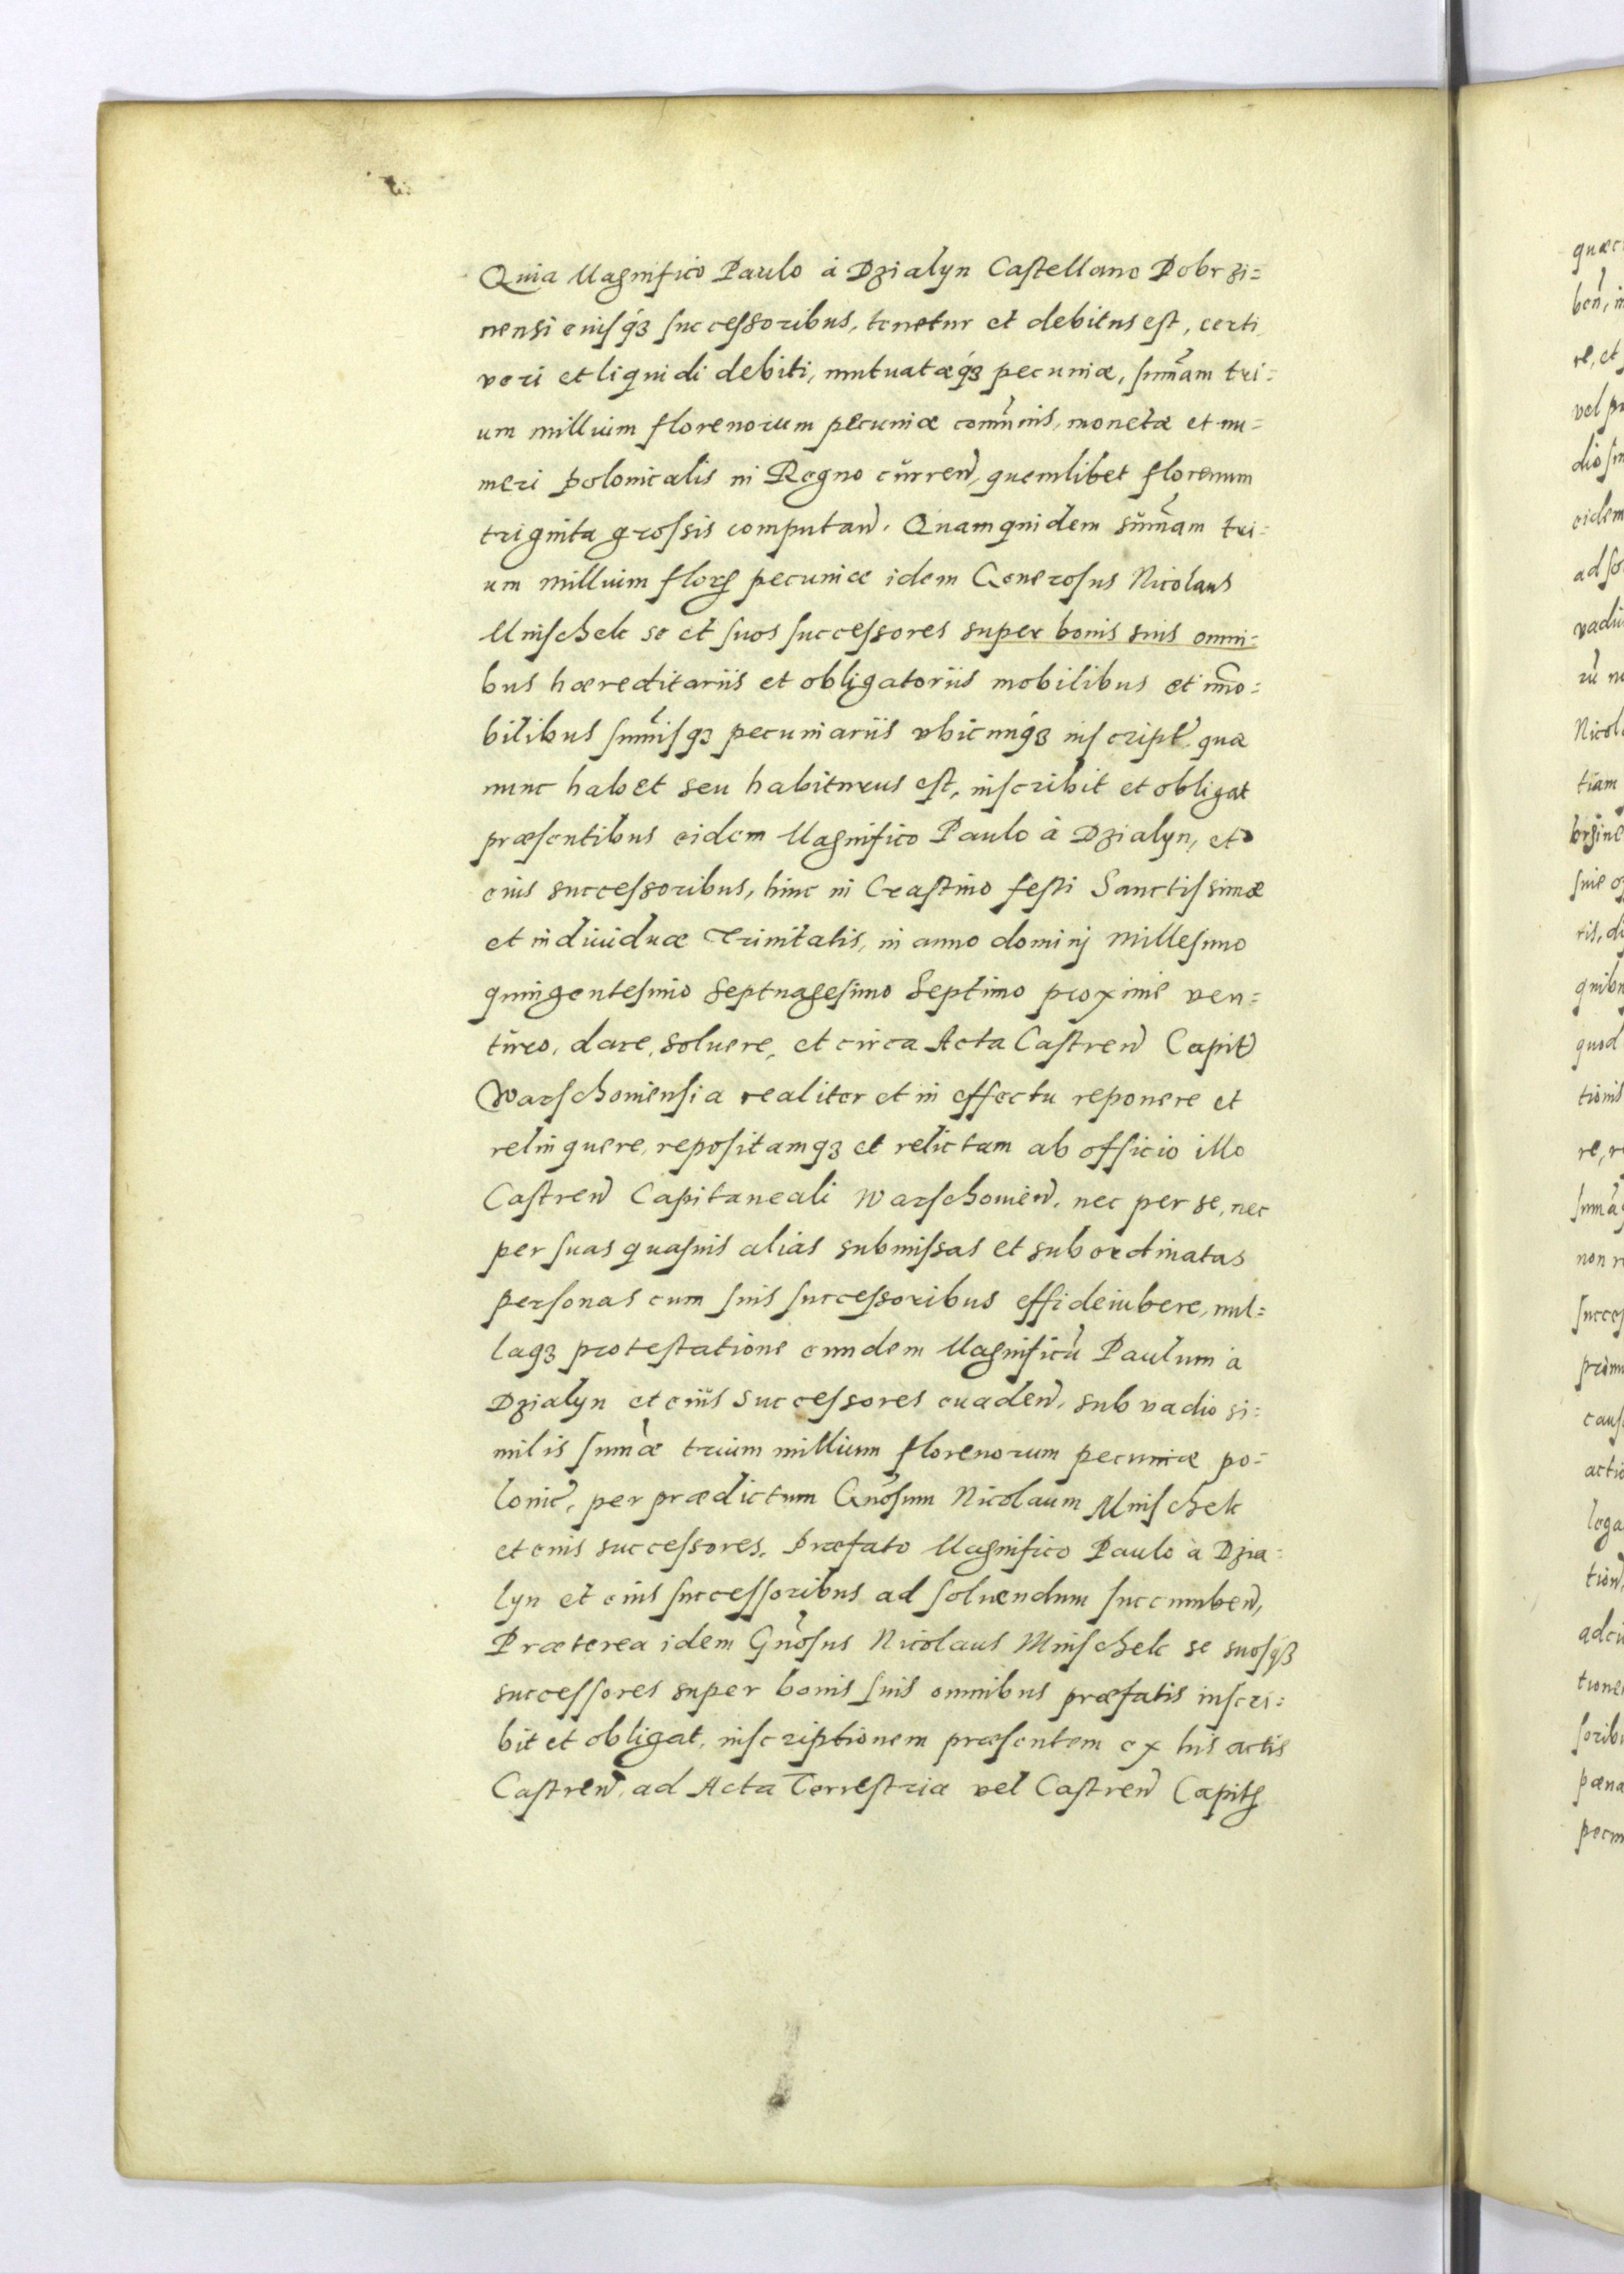 Quia Magnifico Paulo à Dzialyn Castellano Dobrzi=
nensi eiusq́ʒ successoribus, tenetur et debitus est, certi
veri et liquidi debiti, mutuatæq́ʒ pecuniæ, sum̃am tri=
um millium florenorum pecuniæ com̃unis, monetæ et nu=
meri polonicalis in Regno currenɗ, quemlibet florenum
triginta grossis computanɗ. Quamquidem sum̃am tri=
um millium floꝝ pecuniæ idem Generosus Nicolaus
Mnischek se et suos successores super bonis suis omni=
bus hæreditariis et obligatoriis mobilibus et im̃o=
bilibus sum̃isqʒ pecuniariis vbicunq́ʒ inscript̃. quæ
nunc habet seu habiturus est, inscribit et obligat
præsentibus eidem Magnifico Paulo à Dzialyn, et
eius successoribus, hinc in Crastino festi Sanctissimæ
et indiuiduæ Trinitatis, in anno dominj Millesimo
quingentesimo Septuagesimo Septimo proxime ven=
turo, dare, soluere, et circa Acta Castreñ Capit̃
Warschouiensia realiter et in effectu reponere et
relinquere, repositamqʒ et relictam ab officio illo
Castreñ Capitaneali Warschouieñ. nec per se, nec
per suas quasuis alias submissas et subordinatas
personas cum suis successoribus effideiubere, nul=
laqʒ protestatione eundem Magnificũ Paulum à
Dzialyn et eius successores euadeñ, sub vadio si=
milis sum̃æ trium millium florenorum pecuniæ po=
lonic̃, per prædictum Gñosum Nicolaum Mnischek
et eius successores, Præfato Magnifico Paulo à Dzia=
lyn et eius successoribus ad soluendum succumbeñ,
Præterea idem Gñosus Nicolaus Mnischek se suosq́ʒ
successores super bonis suis omnibus præfatis inscri=
bit et obligat, inscriptionem præsentem ex his actis
Castreñ, ad Acta Terrestria vel Castreñ Capitꝭ